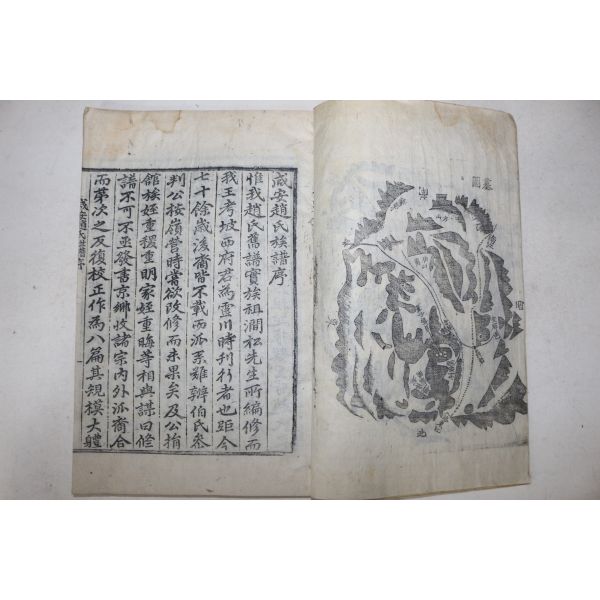 墓圖
北
咸安趙氏族譜序
惟我趙氏舊譜實族祖澗松先生所編修而
我王考坡西府君為靈川時刊行者也距今
七十餘歲後裔皆不載而派系難辨伯氏參
判公按嶺營時嘗欲改修而未果矣及公捐
館族姪重稷重明家姪重晦等相與謀曰修
譜不可不亟發書京鄉收諸宗內外派裔合
而第次之反復校正作為八篇其規模大體
咸安趙氏族譜序